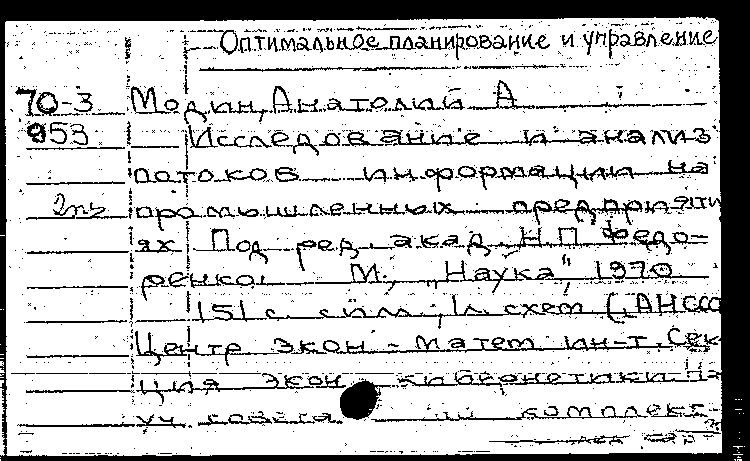 Оптимальное планирование и управление
70-3 Модин, Анатолий А
953 Исследование и анализ
потоков информации на
2пз промышленных предприяти
ях Под ред. акад. Н.П. Федо-
ренко. М., „Наука", 1970
151 с. с илл.; 1 л. схем (АН СССР
Центр экон-матем ин-т. Сек
ция экон кибернетики На
уч совета комплекс-